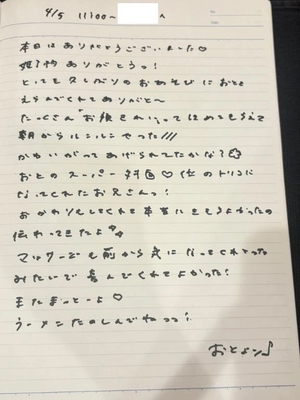 4/5 11:00~ へ
本日はありがとうございました♡
姫予約ありがとうっ!
とっても久しぶりのおあそびにおとを
えらんでくれてありがと〜
たっくさん“お顔きれい”ってほめてもらえて
朝からルンルンやった///
かわいがってあげられてたかな?
おとのスーパー対面♡位のトリコに
なってくれたお兄さんっ!
おかわりもしてくれて本当にきもちよかったの
伝わってきたよ
マッサージも前から気になってくれとった
みたいで喜んでくれてよかった!
またまっとーよ♡
ラーメンたのしんでねっっ!
おとよン♪